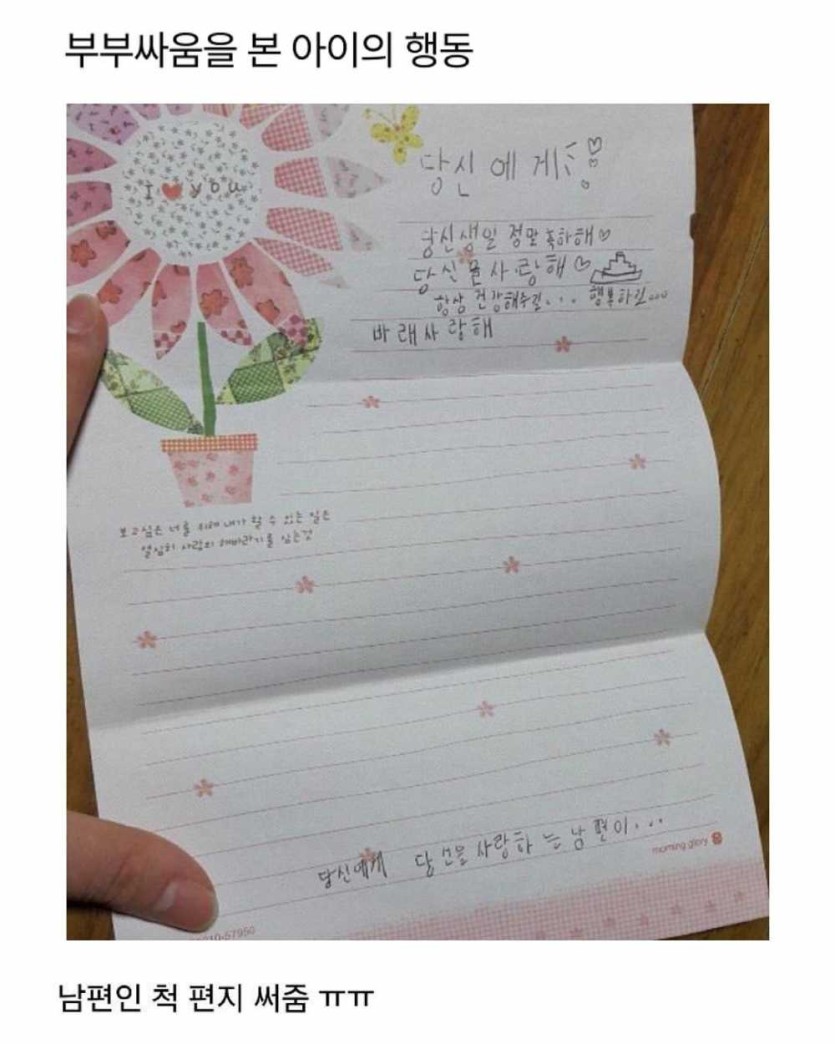 부부싸움을 본 아이의 행동
I ♥ you
당신에게 ♡
당신 생일 정말 축하해♡
당신을 사랑해♡
항상 건강해주길... 행복하길...
바래사랑해
보고싶은 너를 위해 내가 할 수 있는 일은
열심히 사랑의 해바라기를 심는것
당신에게 당신을 사랑하는 남편이...
morning glory
57950
남편인 척 편지 써줌 ㅠㅠ